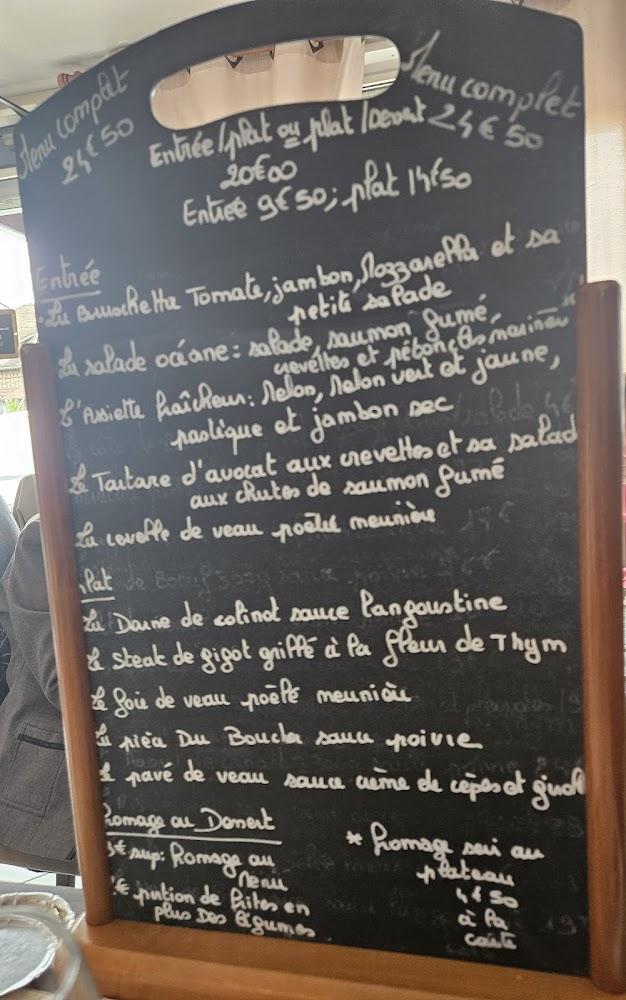 Menu complet
24€50
Menu complet
24€50
Entrée/plat ou plat/Dessert
20€00
Entrée 9€50; plat 14€50
Entrée
La Bruschetta Tomate, jambon, Mozzarella et sa
petite salade
La salade océane: salade, saumon fumé,
crevettes et pétoncles marinées
L'Assiette fraîcheur: Melon, Melon vert et jaune,
pastèque et jambon sec
Le Tartare d'avocat aux crevettes et sa salad
aux chutes de saumon fumé
La cervelle de veau poêlée meunière
Plat
La Darne de colinot sauce langoustine
Le Steak de gigot grillé à la fleur de Thym
Le foie de veau poêlé meunière
La pièce Du Boucher sauce poivre
Le pavé de veau sauce crème de cèpes et girol
Fromage ou Dessert
3€ sup: Fromage au
Menu
€ portion de frites en
plus Des légumes
* fromage seul au
plateau
4€50
à la
carte